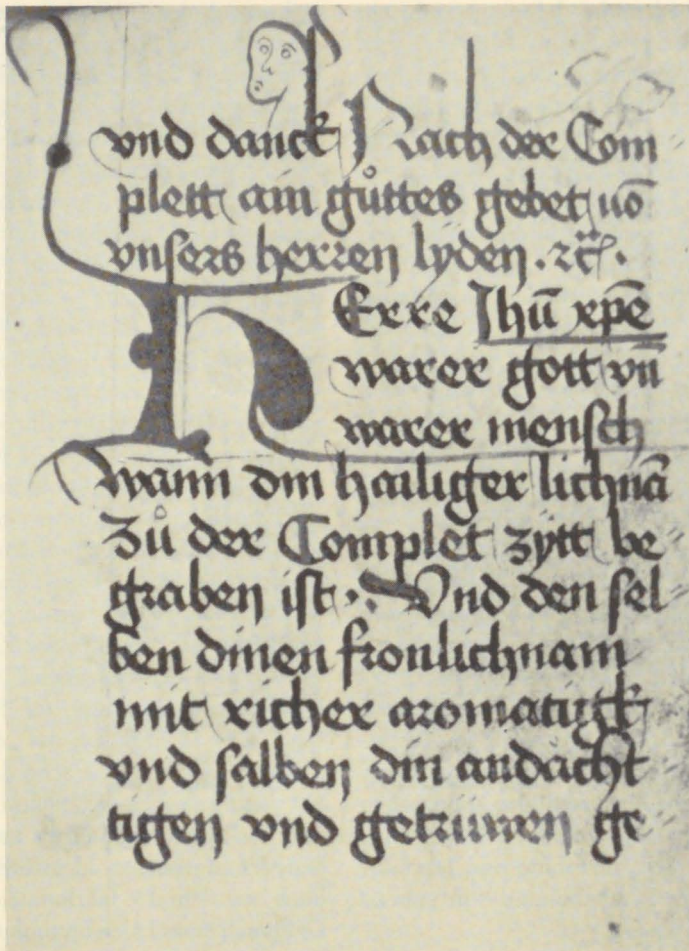 vnd danck Nach der Com
plett ain gůttes gebet uō
vnsers herren lyden . ꝛc̄ .
HErre Jhū xpē
warer gott vn̄
warer mensch
wann din hailiger lichnā
Zů der Complet zytt be
graben ist . Vnd den sel
ben dinen fronlichnam
mit richer aromatigk
vnd salben din andächt
tigen vnd getruwen ge